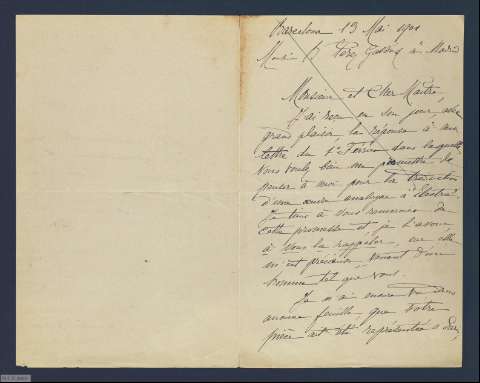 Barcelona 13 Mai 1901
Monsieur B Perez Galdós à Madrid
Monsieur et Cher Maître,
J'ai reçu en son jour, avec
grand plaisir la réponse à ma
lettre du 1er Février dans laquelle
vous voulez bien me permettre de
penser à moi pour la traduction
d'une œuvre analogue à "Electra".
Je tiens à vous remercier de
cette promesse et je l'avoue
à vous la rappeler, car elle
m'est précieuse, venant d'un
homme tel que vous.
Je n'ai encore vu dans
aucune feuille, que votre
pièce ait été représentée à